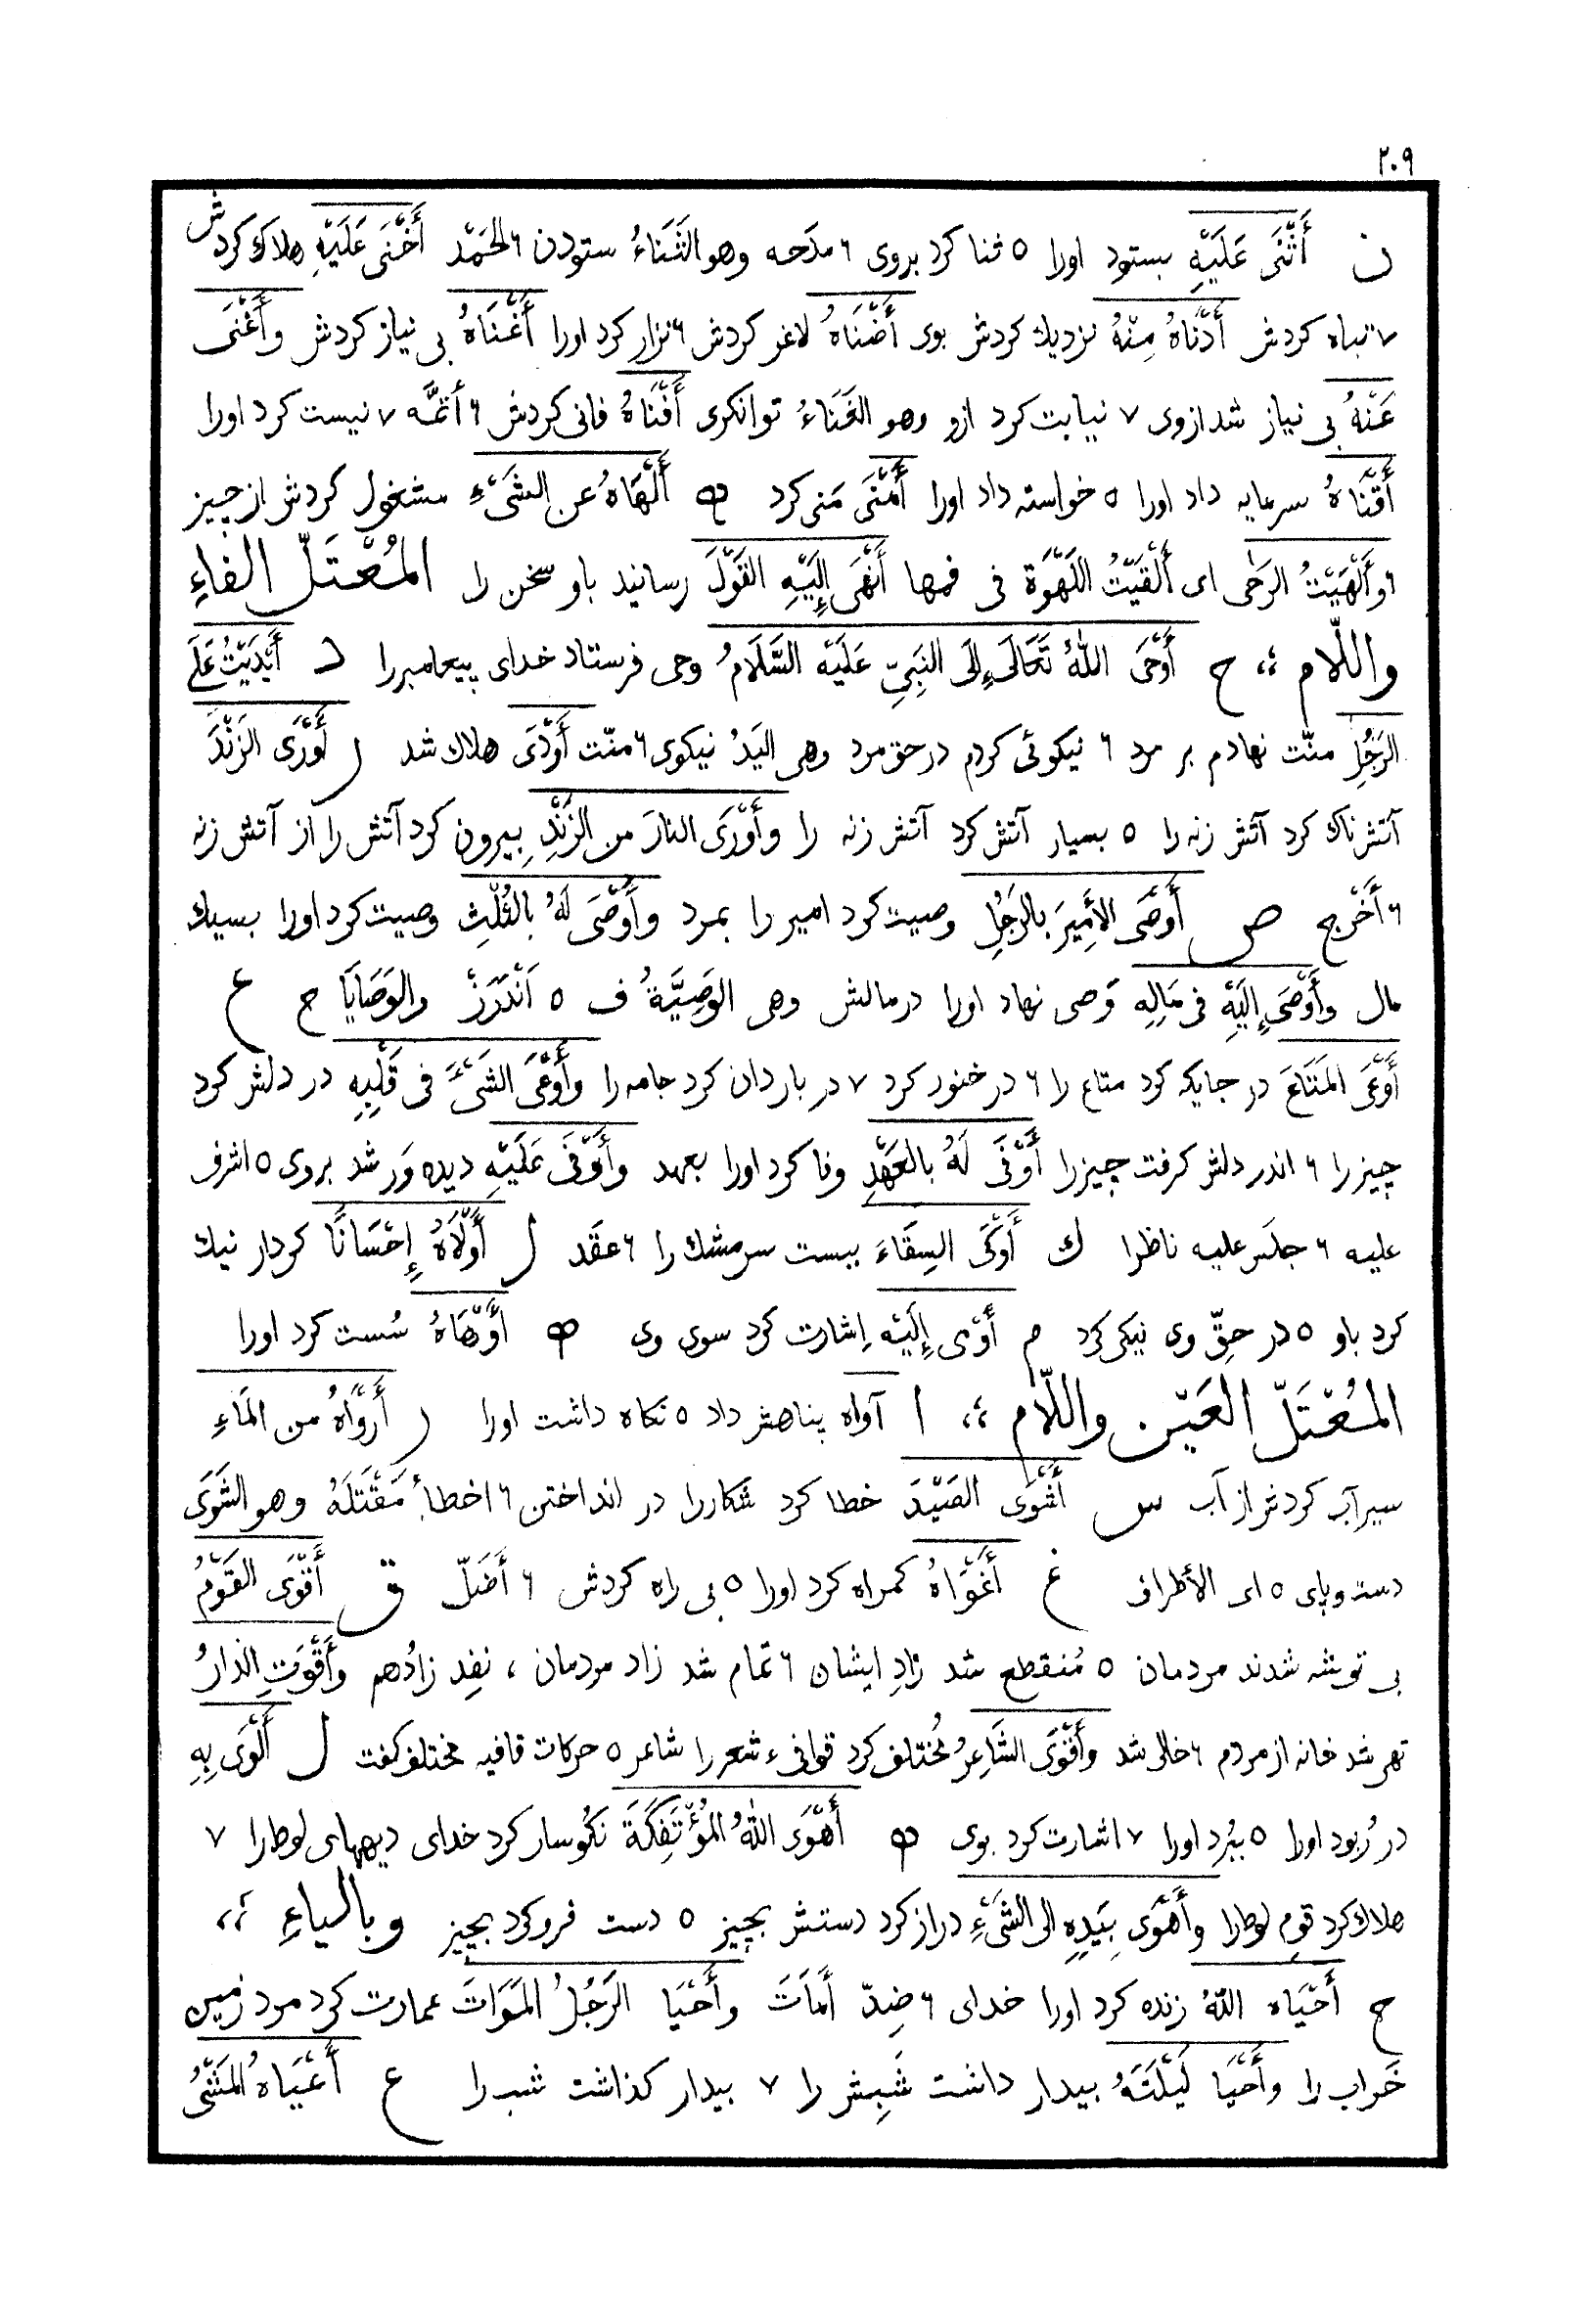 ٢٠٩
ن أَثْنَى عَلَيْهِ بستود اورا ٥ ثنا كرد بروى ٦ مدَحه وهو الثَنَاءُ ستودن ٦ الحَمْد أَخْنَى عَلَيْهِ هلاك كردش
٧ تباه كردش أَدْنَاهُ مِنْهُ نزديك كردش بوى أَضْنَاهُ لاغر كردش ٦ نزار كرد اورا أَغْنَاهُ بى نياز كردش وأَغْنَى
عَنْهُ بى نياز شد ازوى ٧ نيابت كرد ازو وهو الغَنَاءُ توانكرى أَفْنَاهُ فانى كردش ٦ أتمَّه ٧ نيست كرد اورا
أَقْنَاهُ سرمايه داد اورا ٥ خواسته داد اورا أَمْنَى مَنى كرد ه أَلْهَاهُ عن الشَىْءِ مشغول كردش از چيز
٦ وأَلْهَيْتُ الرَحى اى أَلْقَيْتُ اللَهْوَة فى فمها أَنْهَى إِلَيْهِ القَوْلَ رسانيد باو سخن را المُعْتَلّ الفاءِ
واللّام ،، ح أَوْحَى اللهُ تَعَالَى إِلَى النَبِىّ عَلَيْه السَّلَامُ وحى فرستاد خداى پيغامبررا د أَيْدَيْتُ عَلَى
الرَجُلِ منّت نهادم بر مرد ٦ نيكوئى كردم در حق مرد وهى اليَدُ نيكوى ٦ منّت أَوْدَى هلاك شد ر أَوْرَى الزَنْدَ
آتش ناك كرد آتش زنه را ٥ بسيار آتش كرد آتش زنه را وأَوْرَى النارَ من الزَنْدِ بيرون كرد آتش را از آتش زنه
٦ أَخْرج ص أَوْصَى الأَمِيرَ بالرَجُلِ وصيت كرد امير را بمرد وأَوْصَى لَهُ بالثُلْثِ وصيت كرد اورا بسيك
مال وأَوْصَى إِلَيْهِ فى مَالِهِ وَصى نهاد اورا در مالش وهى الوَصِيَّةُ ف ٥ اَنْدَرَزْ والوَصَايَا ج ع
أَوْعَى المَتَاعَ در جايكه كرد متاع را ٦ در خنور كرد ٧ در باردان كرد جامه را وأَوْعَى الشَىْءَ فى قَلْبِهِ در دلش كرد
چيز را ٦ اندر دلش كرفت چيزرا أَوْفَى لَهُ بالعَهْدِ وفا كرد اورا بعهد وأَوْفَى عَلَيْهِ ديده وَر شد بروى ٥ اشرف
عليه ٦ جلَس عليه ناظرا ك أَوْكَى السِقَاءَ ببست سرمشك را ٦ عقَد ل أَوْلَاهُ إِحْسَانًا كردار نيك
كرد باو ٥ در حقّ وى نيكى كرد م أَوْمَى إِلَيْه اِشارت كرد سوى وى ه أَوْهَاهُ سُست كرد اورا
المُعْتَلّ العَيْن واللّام ،، ا آواه پناهش داد ٥ نكاه داشت اورا ر أَرْوَاهُ من المَاءِ
سيراب كردش از آب س أَشْوَى الصَيْدَ خطا كرد شكاررا در انداختن ٦ اخطأ مَقْتَلَهُ وهو الشَوَى
دست وپاى ٥ اى الأطراف غ أَغْوَاهُ كمراه كرد اورا ٥ بى راه كردش ٦ أَضَلّ ق أَقْوَى القَوْمُ
بى توشه شدند مردمان ٥ مُنقطع شد زادِ ايشان ٦ تمام شد زاد مردمان ، نفِد زادُهم وأَقْوَتِ الدارُ
تهى شد خانه از مردم ٦ خالى شد وأَقْوَى الشَاعِرُ مُختلف كرد قوافىء شعر را شاعر ٥ حركات قافيه مختلف كفت ل أَلْوَى بِهِ
در رُبود اورا ٥ ببُرد اورا ٧ اشارت كرد بوى ه أَهْوَى اللهُ المُؤْتَفِكَةَ نكُوسار كرد خداى ديههاى لوط را ٧
هلاك كرد قومِ لوط را وأَهْوَى بِيَدِهِ الى الشَىْءِ دراز كرد دستش بچيز ٥ دست فرو كرد بچيز وبالياءِ ،،
ح أَحْيَاه اللهُ زنده كرد اورا خداى ٦ ضِدّ أَمَاتَ وأَحْيَا الرَجُلُ المَوَاتَ عمارت كرد مرد زمين
خَراب را وأَحْيَا لَيْلَتَهُ بيدار داشت شَبِش را ٧ بيدار كذاشت شب را ع أَعْيَاهُ المَشْىُ